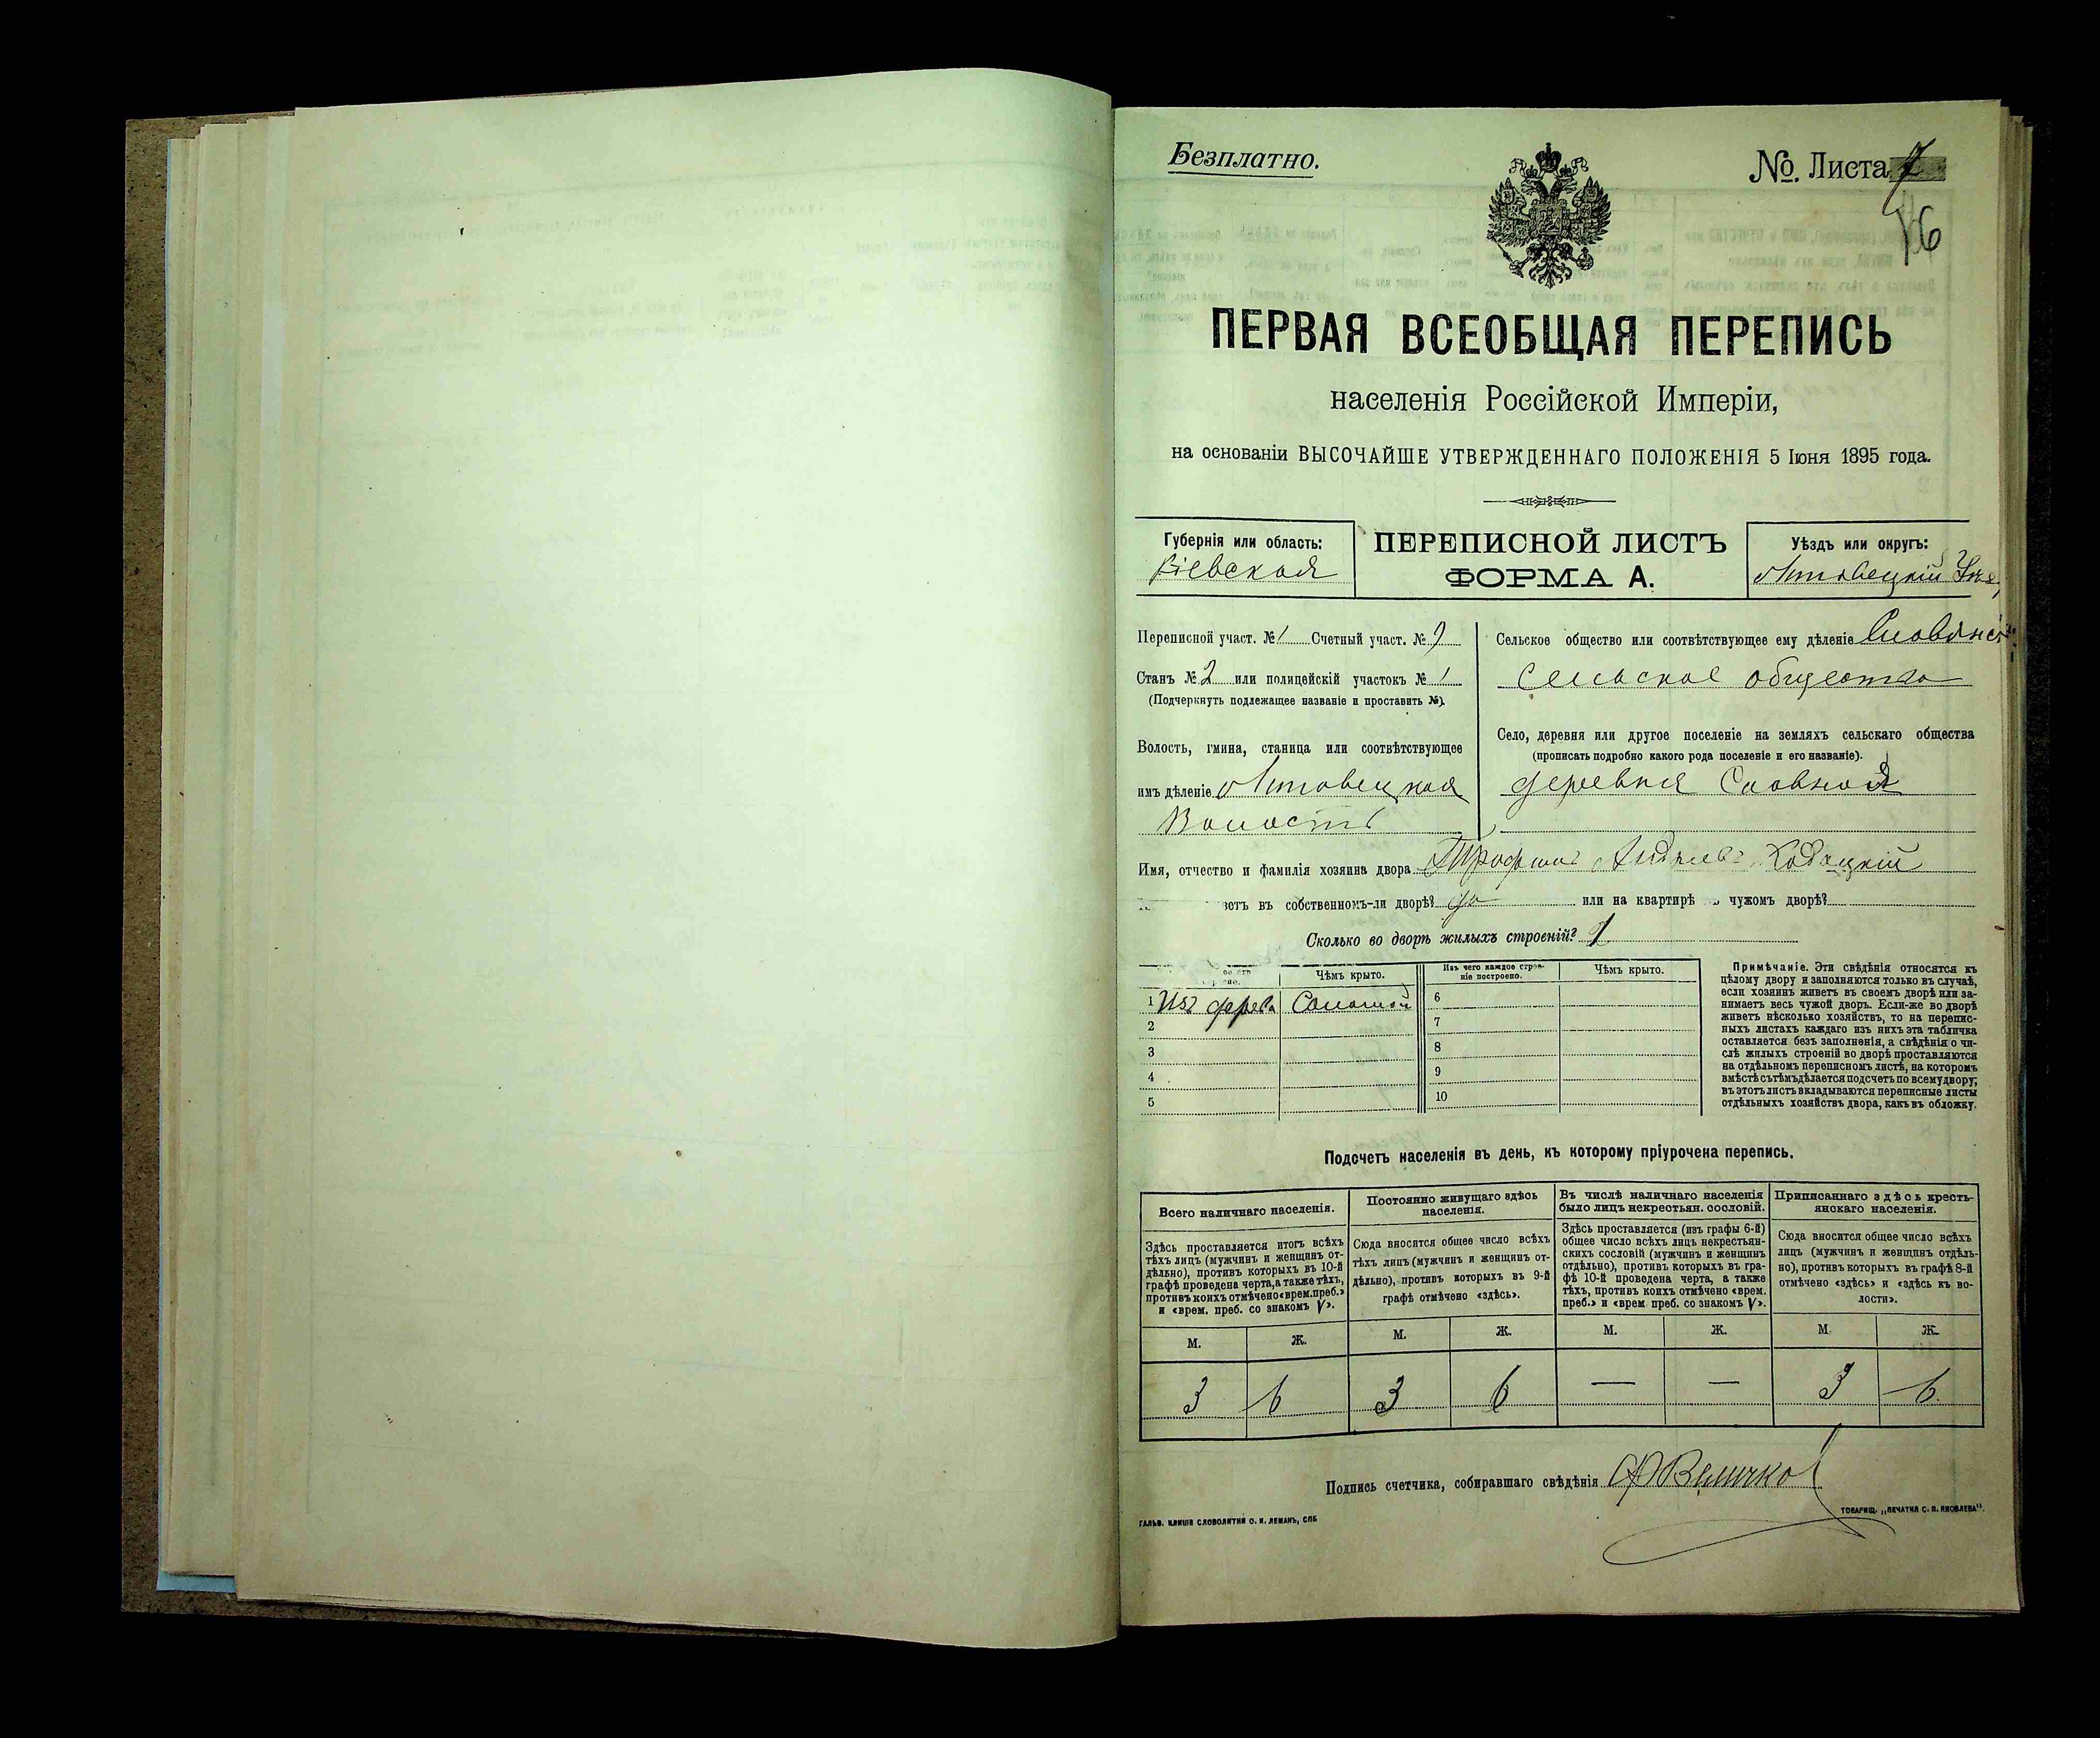 Безплатно.
№. Листа 7
16
ПЕРВАЯ ВСЕОБЩАЯ ПЕРЕПИСЬ
населенія Россійской Имперіи,
на основаніи ВЫСОЧАЙШЕ УТВЕРЖДЕННАГО ПОЛОЖЕНІЯ 5 Іюня 1895 года.
Губернія или область:
Кіевская
ПЕРЕПИСНОЙ ЛИСТЪ
ФОРМА А.
Уѣздъ или округъ:
Липовецкій
Переписной участ. № 1 Счетный участ. №
Станъ № 2 или полицейскій участокъ № 1
(Подчеркнуть подлежащее названіе и проставить №).
Волость, гмина, станица или соотвѣтствующее
имъ дѣленіе Липовецкая
Волость
Сельское общество или соотвѣтствующее ему дѣленіе
Сельское общество
Село, деревня или другое поселеніе на земляхъ сельскаго общества
(прописать подробно какого рода поселеніе и его названіе).
деревня
Имя, отчество и фамилія хозяина двора Трофимъ Андреевъ
ветъ въ собственномъ-ли дворѣ? да или на квартирѣ чужомъ дворѣ?
Сколько во дворѣ жилыхъ строеній? 1
Чѣмъ крыто.
Изъ чего каждое строе-
ніе построено.
Чѣмъ крыто.
1 Изъ дерева Соломой 6
2 7
3 8
4 9
5 10
Примѣчаніе. Эти свѣдѣнія относятся къ
цѣлому двору и заполняются только въ случаѣ,
если хозяинъ живетъ въ своемъ дворѣ или за-
нимаетъ весь чужой дворъ. Если-же во дворѣ
живетъ нѣсколько хозяйствъ, то на перепис-
ныхъ листахъ каждаго изъ нихъ эта табличка
оставляется безъ заполненія, а свѣдѣнія о чи-
слѣ жилыхъ строеній во дворѣ проставляются
на отдѣльномъ переписномъ листѣ, на которомъ
вмѣстѣ съ тѣмъ дѣлается подсчетъ по всему двору;
въ этотъ листъ вкладываются переписные листы
отдѣльныхъ хозяйствъ двора, какъ въ обложку.
Подсчетъ населенія въ день, къ которому пріурочена перепись.
Всего наличнаго населенія.
Здѣсь проставляется итогъ всѣхъ
тѣхъ лицъ (мужчинъ и женщинъ от-
дѣльно), противъ которыхъ въ 10-й
графѣ проведена черта, а также тѣхъ,
противъ коихъ отмѣчено «врем. преб.»
и «врем. преб. со знакомъ V».
Постоянно живущаго здѣсь
населенія.
Сюда вносится общее число всѣхъ
тѣхъ лицъ (мужчинъ и женщинъ от-
дѣльно), противъ которыхъ въ 9-й
графѣ отмѣчено «здѣсь».
Въ числѣ наличнаго населенія
было лицъ некрестьян. сословій.
Здѣсь проставляется (изъ графы 6-й)
общее число всѣхъ лицъ некрестьян-
скихъ сословій (мужчинъ и женщинъ
отдѣльно), противъ которыхъ въ гра-
фѣ 10-й проведена черта, а также
тѣхъ, противъ коихъ отмѣчено «врем.
преб.» и «врем преб. со знакомъ V».
Приписаннаго здѣсь кресть-
янскаго населенія.
Сюда вносится общее число всѣхъ
лицъ (мужчинъ и женщинъ отдѣль-
но), противъ которыхъ въ графѣ 8-й
отмѣчено «здѣсь» и «здѣсь къ во-
лости».
М. Ж. М. Ж. М. Ж. М. Ж.
3 6 3 6 — — 3 6.
Подпись счетчика, собиравшаго свѣдѣнія Величко
ГАЛЬВ. КЛИШЕ СЛОВОЛИТНИ О. И. ЛЕМАНЪ, СПБ
ТОВАРИЩ. „ПЕЧАТНЯ С. П. ЯКОВЛЕВА".